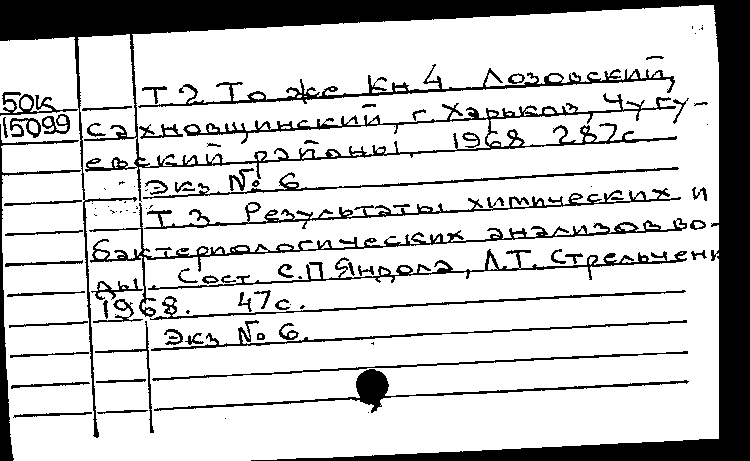 50к
15099
Т.2 То же. Кн.4. Лозовский,
Сахновщинский, г.Харьков, Чугу-
евский районы. 1968 287с
Экз № 6
Т.3. Результаты химических и
бактериологических анализов во-
ды. Сост. С.П.Яндола, Л.Т. Стрельченк
1968. 47с.
Экз № 6.